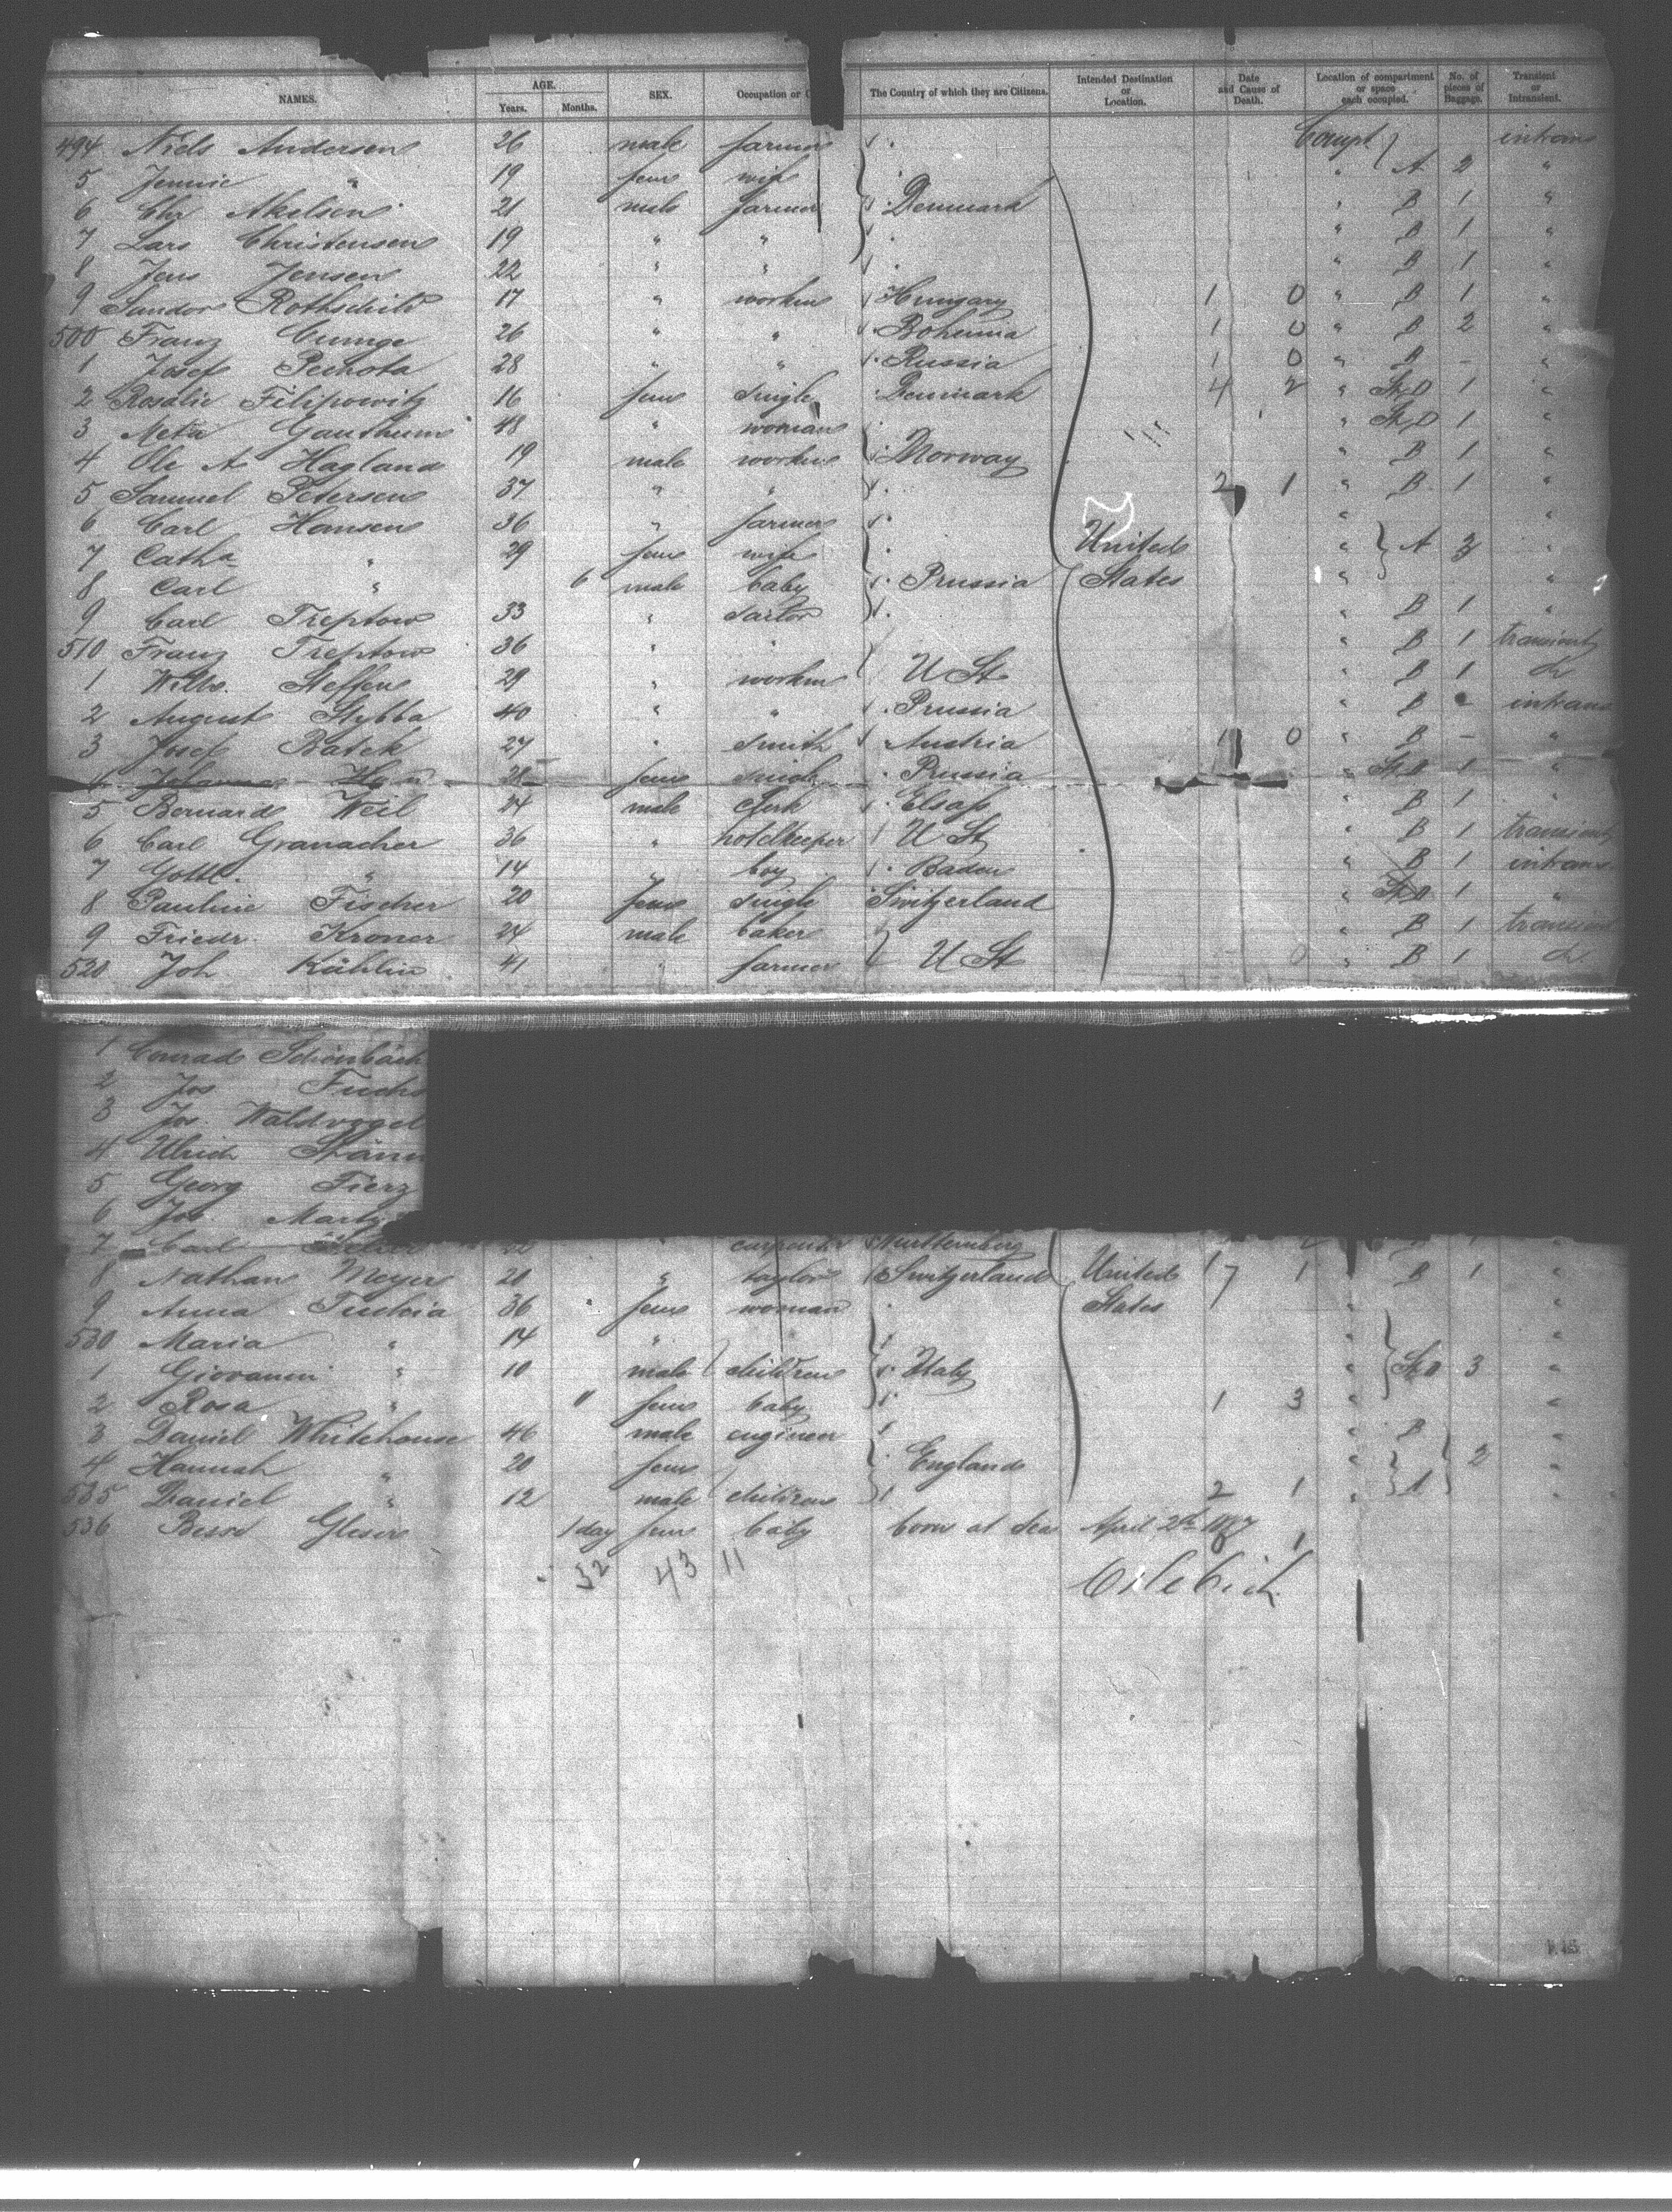 NAMES. AGE. Years. Months. SEX. Occupation or The Country of which they are Citizens. Intended Destination or Location. Date and Cause of Death. Location of compartment or space each occupied. No. of pieces of Baggage. Transient or Intransient.
494 Niels Andersen 26 male farmer Compt intrans
5 Jennie " 19 fem wife " A 2 "
6 Chr Akelsen 21 male farmer Denmark " B 1 "
7 Lars Christensen 19 " " " B 1 "
8 Jens Jensen 22 " " " B 1 "
9 Sandor Rothschild 17 " worker Hungary 1 0 " B 1 "
500 Franz 26 " " Bohemia 1 0 " B 2 "
1 Josef Pechota 28 " " Russia 1 0 " B - "
2 Rosalie Filipowitz 16 fem single Denmark 4 2 " St D 1 "
3 Meta 48 " woman " St D 1 "
4 Ole A Hagland 19 male worker Norway " B 1 "
5 Samuel Petersen 37 " " 2 1 " B 1 "
6 Carl Hansen 36 " farmer " "
7 Catha " 29 fem wife United " A 3 "
8 Carl " 6 male baby Prussia States " "
9 Carl Treptow 33 " sailor " B 1 "
510 Franz Treptow 36 " " " B 1 transient
1 Wilh. Steffen 29 " worker U St " B 1 do
2 August Stybba 40 " " Prussia " B intrans
3 Josef Batek 27 " smith Austria 1 0 " B - "
4 Johanna 28 fem single Prussia " St D 1 "
5 Bernard Weil 24 male clerk Elsaß " B 1 "
6 Carl Granacher 36 " hotelkeeper U St " B 1 transient
7 Gottl. " 14 " boy Baden " B 1 intrans
8 Pauline Fischer 20 fem single Switzerland " St D 1 "
9 Friedr. Kroner 24 male baker " B 1 transient
520 Joh Kählin 41 " farmer U St " B 1 do.
1 Conrad Schönbäch
2 Jos Fuchs
3 Jos. Waldvogel
4 Ulrich
5 Georg Fierz
6 Jos. Marty
7 Carl 22 " carpenter Württemberg
8 Nathan Meyer 20 " taylor Switzerland United 7 1 " B 1 "
9 Anna 36 fem woman States " "
530 Maria " 14 " " "
1 Giovanni " 10 male children Italy " St D 3 "
2 Rosa " 11 fem baby 1 3 " "
3 Daniel Whitehouse 46 male engineer " B "
4 Hannah " 20 fem England " 2 "
535 Daniel " 12 male children 2 1 " A "
536 Gleser 1 day fem baby born at sea April 2th 1887 1
32 43 11